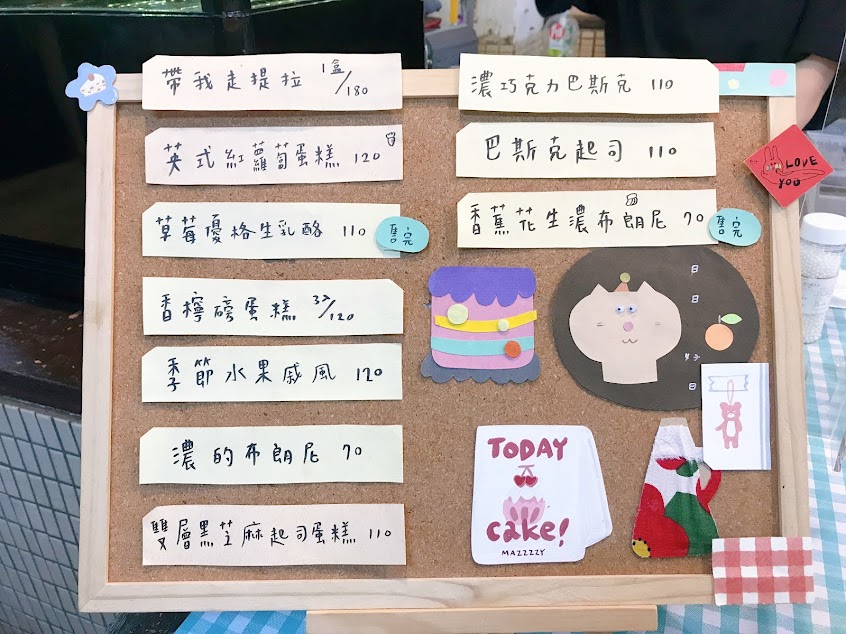 帶我走提拉 1盒/180
英式紅蘿蔔蛋糕 120
草莓優格生乳酪 110 售完
香檸磅蛋糕 37/120
季節水果戚風 120
濃的布朗尼 70
雙層黑芝麻起司蛋糕 110
濃巧克力巴斯克 110
巴斯克起司 110
香蕉花生濃布朗尼 70 售完
LOVE
YOU
日
日
好
日
TODAY
cake!
MAZZZZY